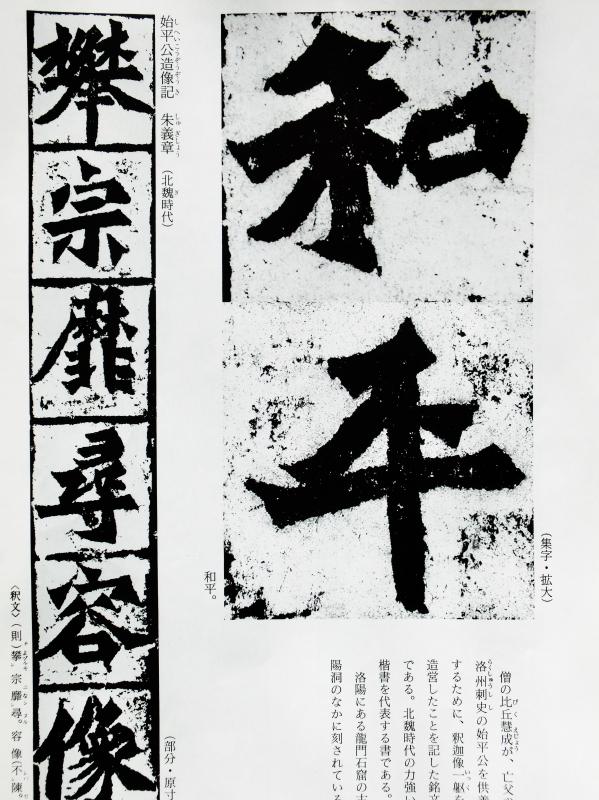 (集字・拡大)
和平
和平。
僧の比丘慧成が、亡父
洛州刺史の始平公を供養
するために、釈迦像一躯を
造営したことを記した銘文
である。北魏時代の力強い
楷書を代表する書である。
洛陽にある龍門石窟の古
陽洞のなかに刻されている
始平公造像記 朱義章 (北魏時代)
(部分・原寸
攀宗靡尋容像
〈釈文〉(則)攀宗靡尋。容像(不)陳。